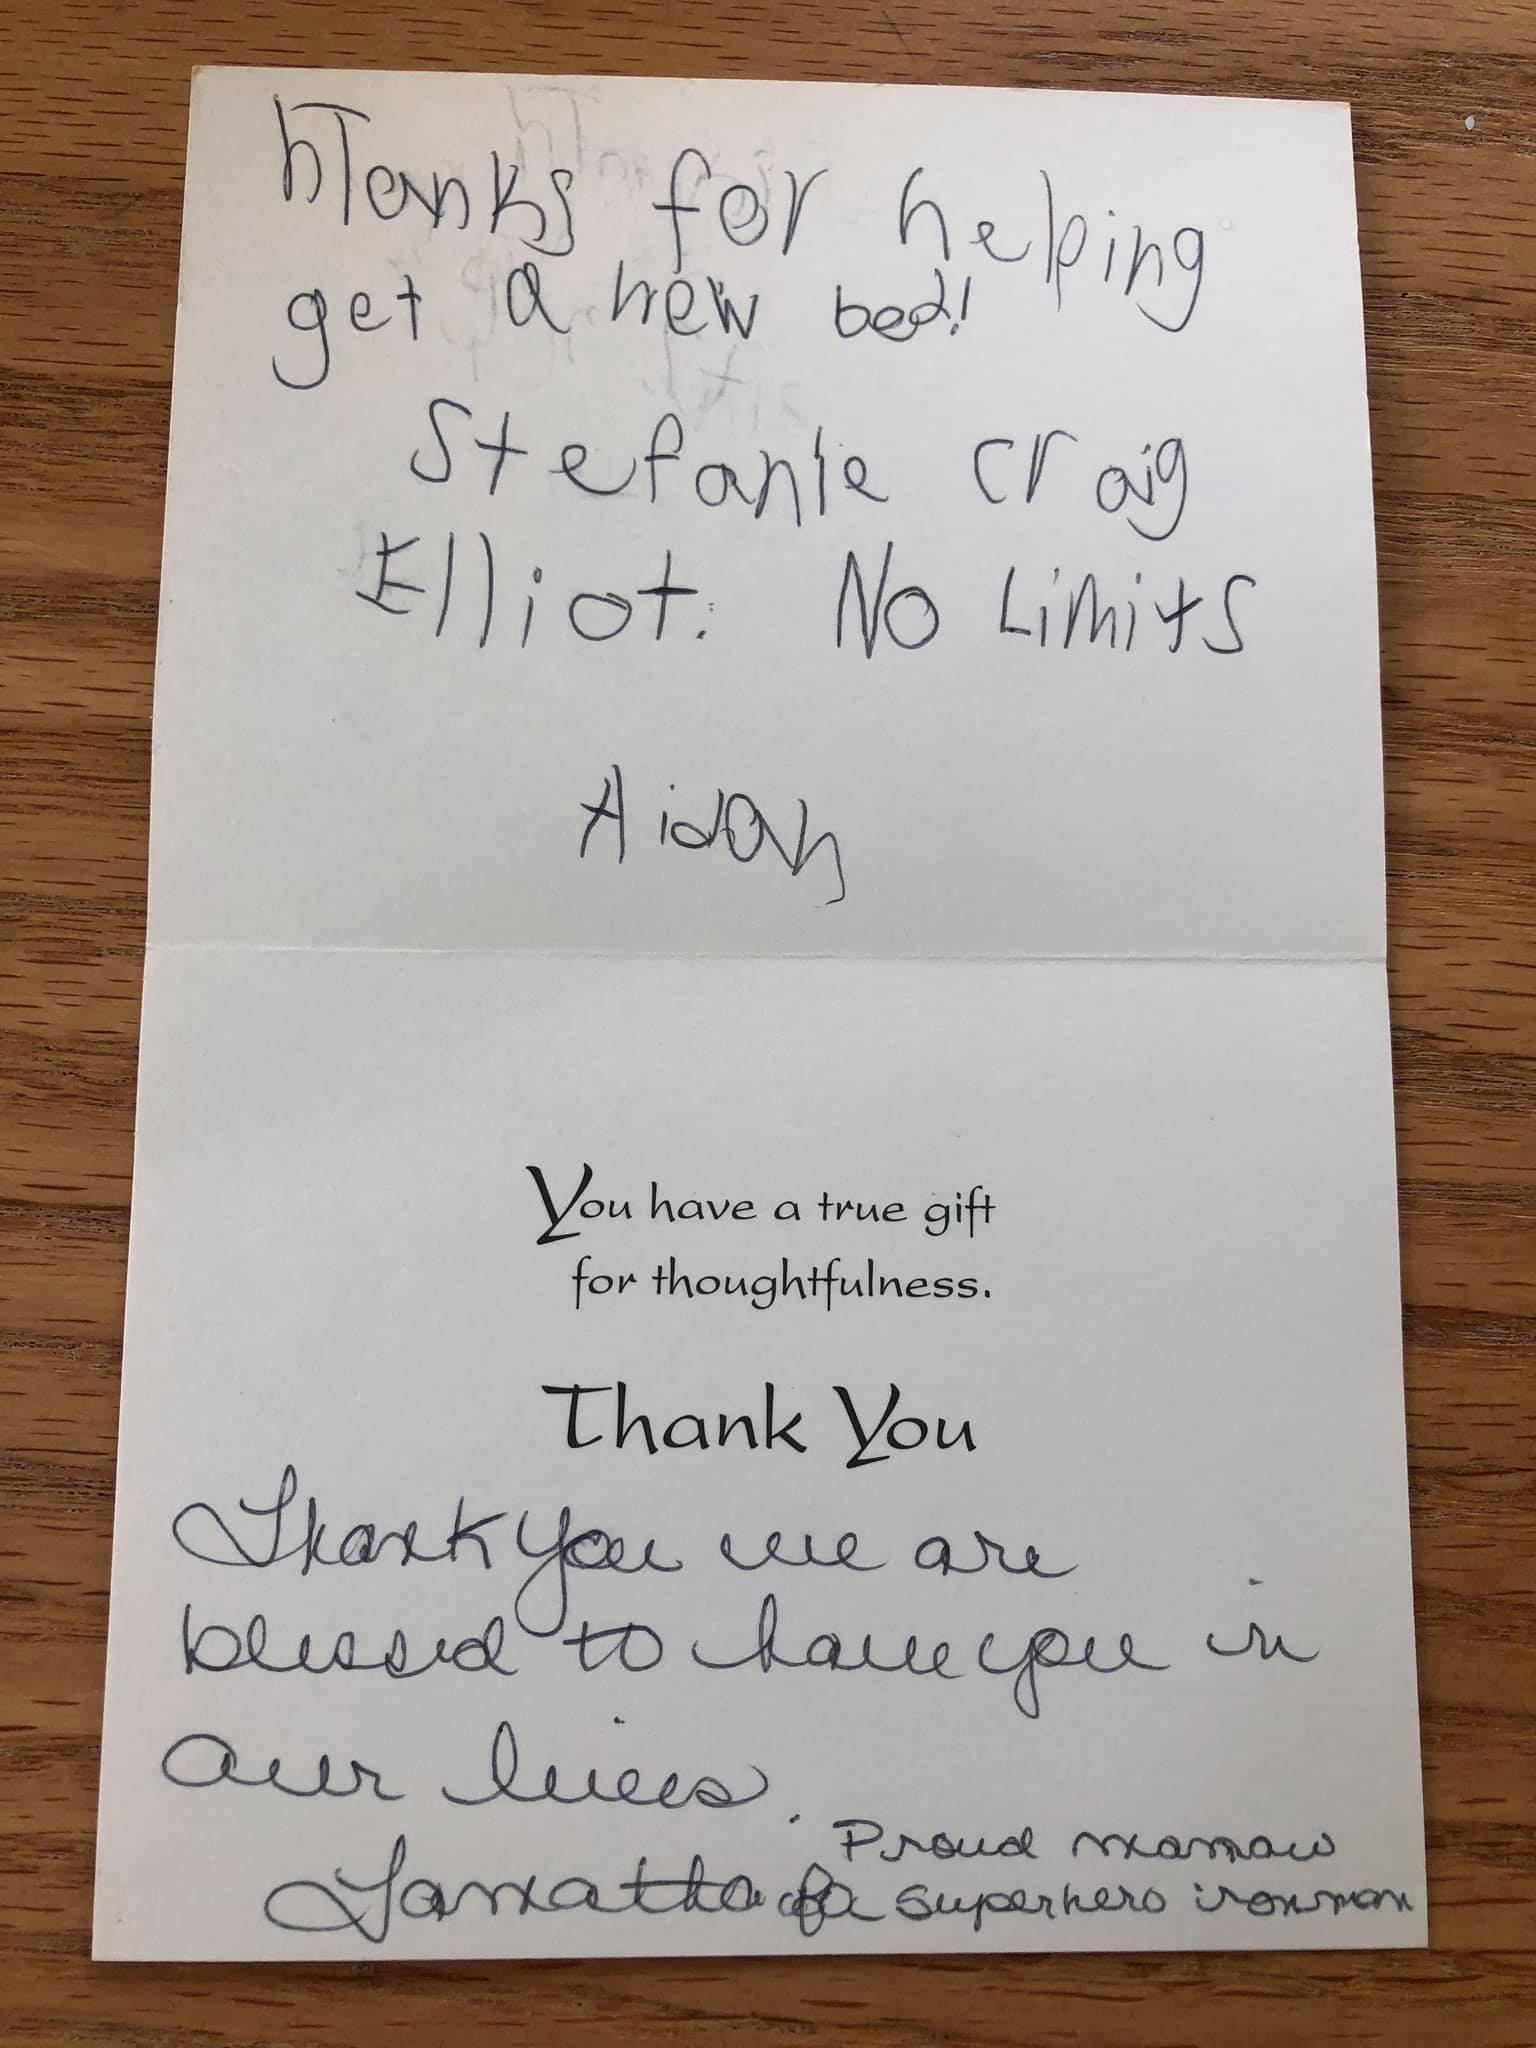 hTanks for helping
get a new bed!
Stefanie Craig
Elliot. No Limits
Aidan
You have a true gift
for thoughtfulness.
Thank You
Thank you we are
blessed to have you in
our lives.
Proud mamaw
of a superhero ironman